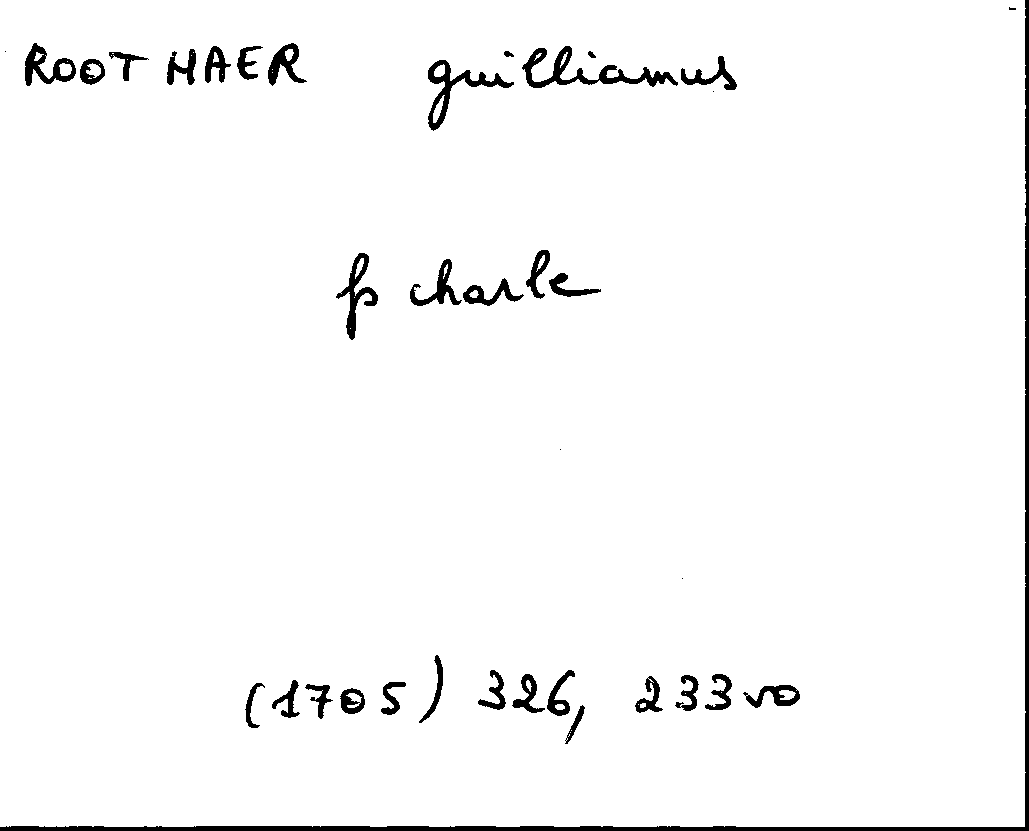 ROOTHAER guilliamus
fs charle
(1705) 326, 233vo